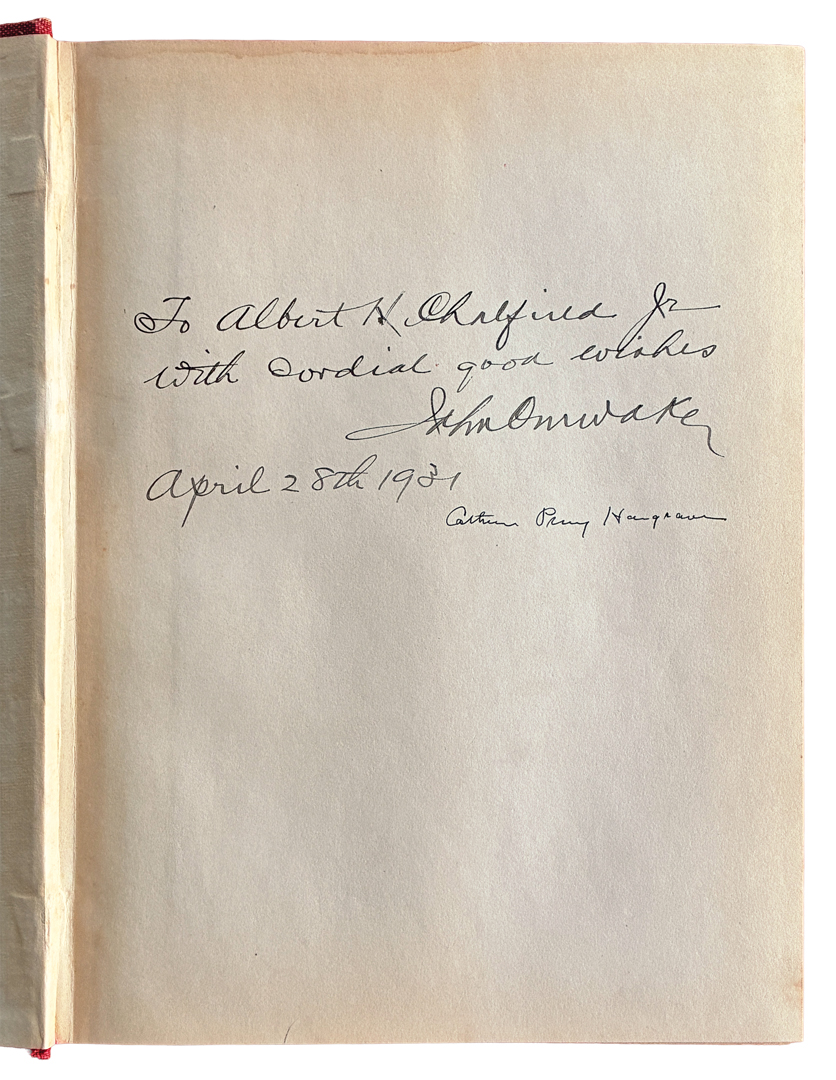 To Albert H Chatfield Jr
with cordial good wishes
John Omwake
April 28th 1931
Catherine Perry Hargrave